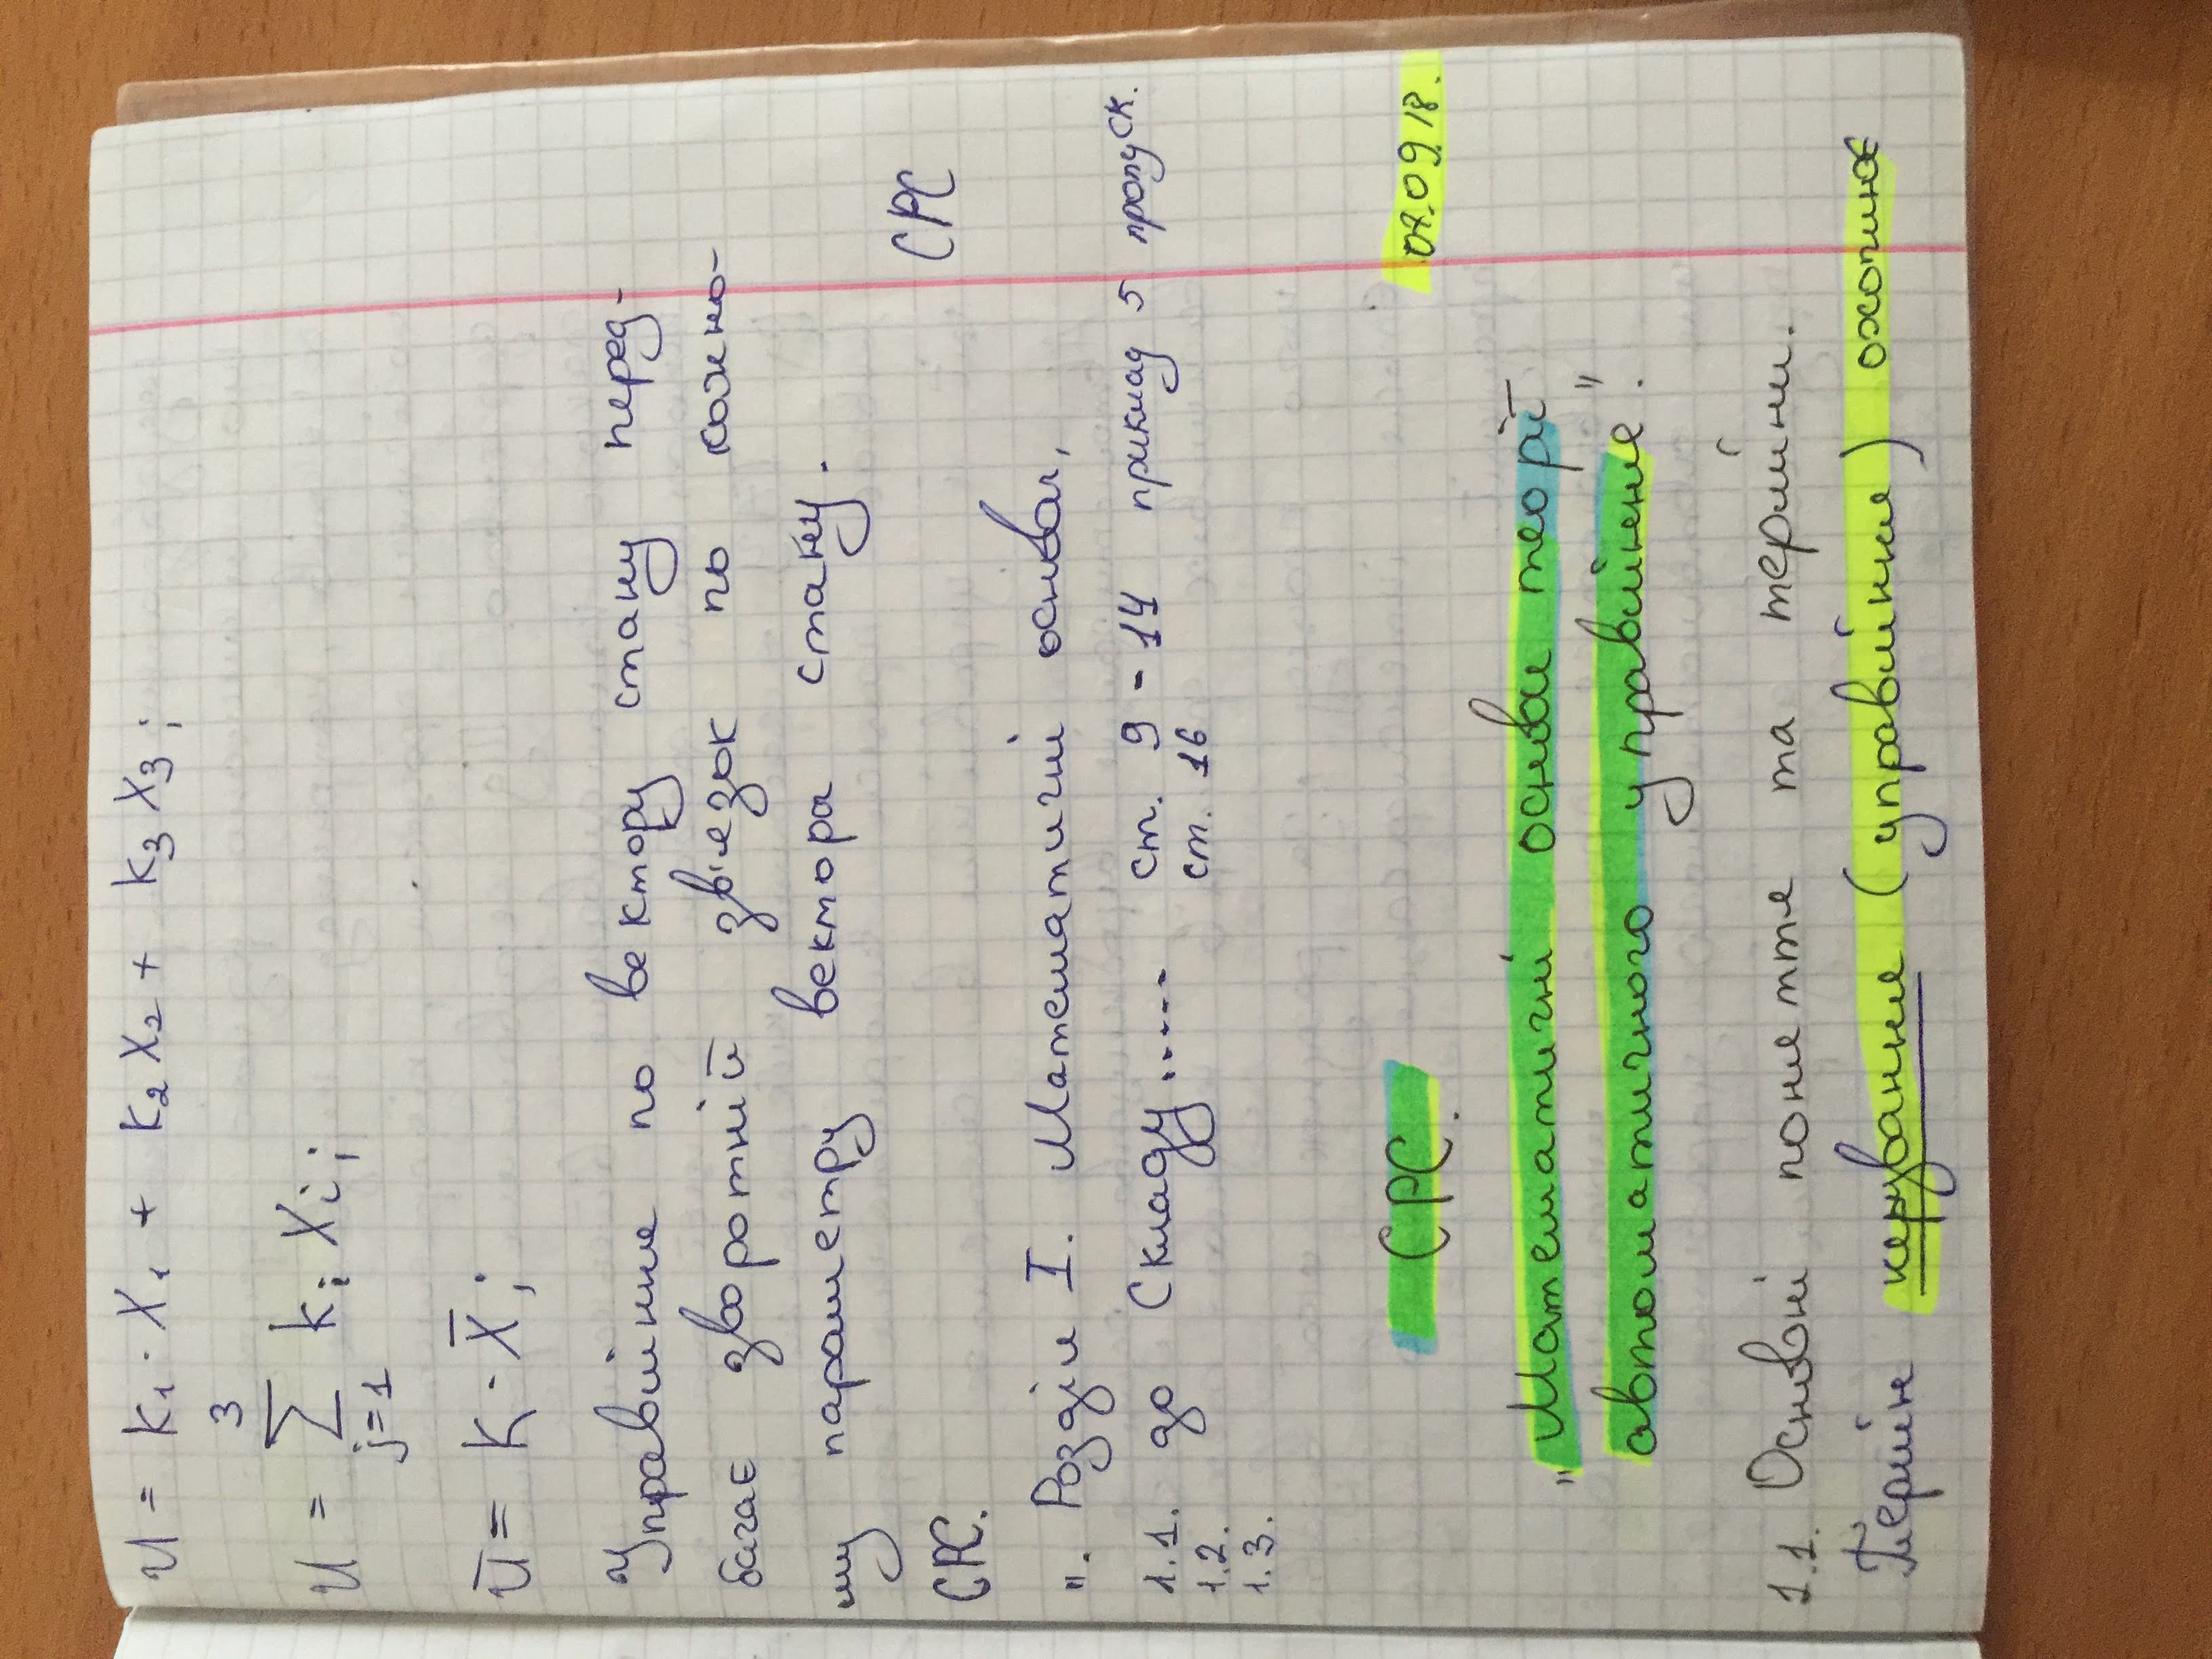 U = K₁ · X₁ + K₂ X₂ + K₃ X₃;
3
U = ∑ kᵢ Xᵢ;
j=1
Ū = K · X̄;
Управління по вектору стану перед-
бачає зворотній зв'язок по кожно-
му параметру вектора стану.
СРС
СРС.
„. Розділ I. Математичні основи,
1.1. до Складу..... ст. 9 - 14 приклад 5 пропуск.
1.2. ст. 16
1.3.
СРС. 07.09.18.
„Математичні основи теорії
автоматичного управління".
1.1. Основні поняття та терміни.
Термін керування (управління) охоплює